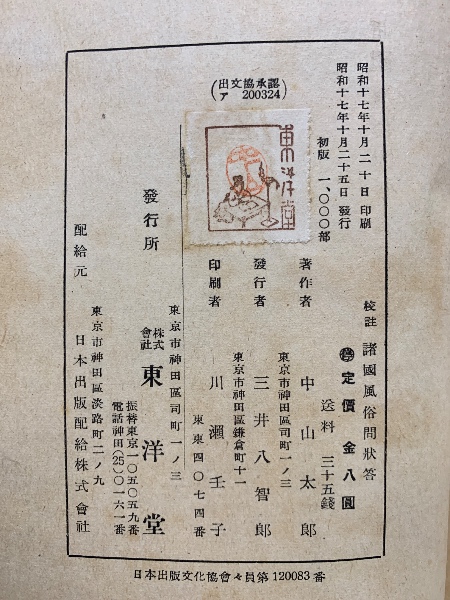 昭和十七年十月二十日 印刷
昭和十七年十月二十五日 發行
初版 一、〇〇〇部
(出文協承認
ア 200324)
東洋堂
校註 諸國風俗問狀答
㊞定價 金八圓
送料 三十五錢
著作者 中山太郎
東京市神田區司町一ノ三
發行者 三井八智郎
東京市神田區鎌倉町十一
印刷者 川瀨壬子
東東四〇七四番
東京市神田區司町一ノ三
發行所 株式會社 東洋堂
振替東京一〇五〇五九番
電話神田(25)〇一六一番
東京市神田區淡路町二ノ九
配給元 日本出版配給株式會社
日本出版文化協會々員第 120083 番